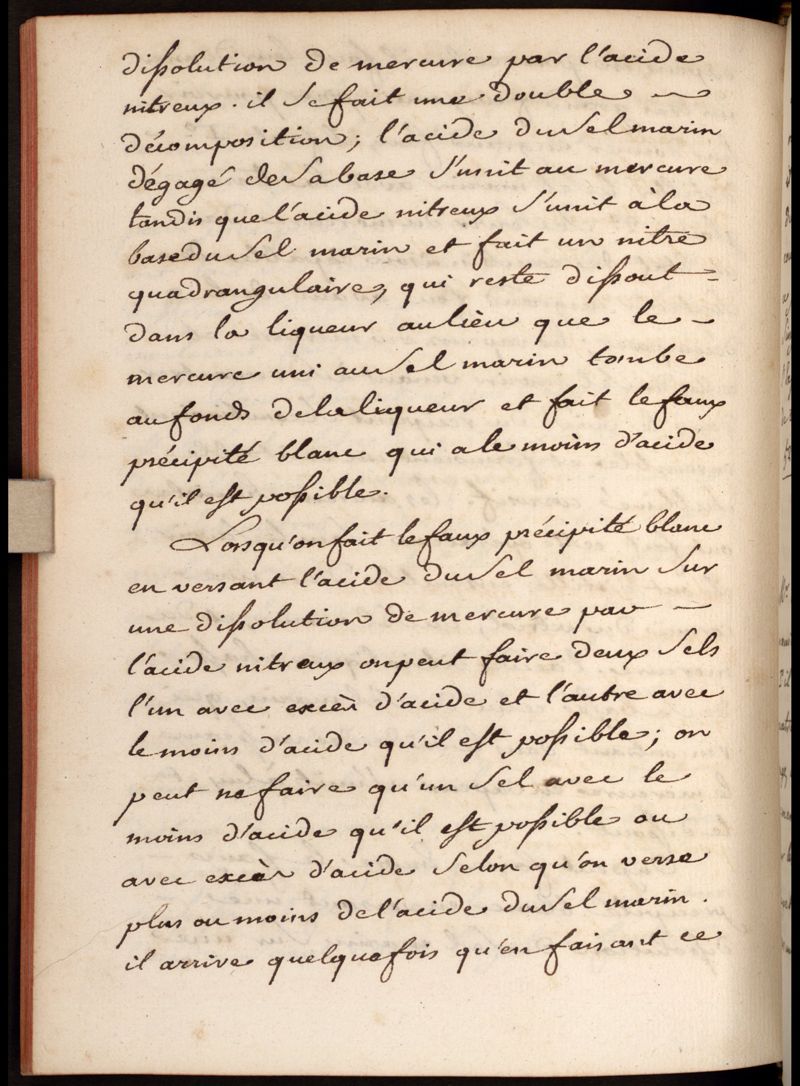 dissolution de mercure par l'acide
nitreux. il se fait une double ~
décomposition; l'acide du Sel marin
dégagé de Sa base S'unit au mercure
tandis que l'acide nitreux S'unit à la
base du Sel marin et fait un nitre
quadrangulaire, qui reste dissout =
dans la liqueur au lieu que le -
mercure uni au Sel marin tombe
au fonds de la liqueur et fait le faux
précipité blanc qui a le moins d'acide
qu'il est possible.
Lorsqu'on fait le faux précipité blanc
en versant l'acide du Sel marin Sur
une dissolution de mercure par -
l'acide nitreux on peut faire deux Sels
l'un avec excès d'acide et l'autre avec
le moins d'acide qu'il est possible; on
peut ne faire qu'un Sel avec le
moins d'acide qu'il est possible ou
avec excès d'acide Selon qu'on verse
plus ou moins de l'acide du Sel marin.
il arrive quelquefois qu'en faisant ce